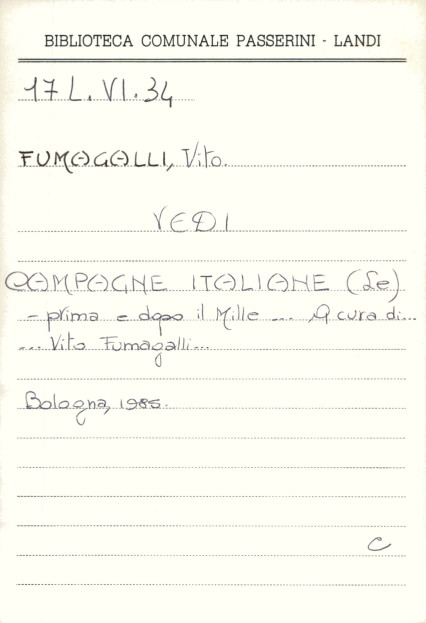 BIBLIOTECA COMUNALE PASSERINI - LANDI
17 L. VI. 34
FUMAGALLI, Vito.
VEDI
CAMPAGNE ITALIANE (Le)
- prima e dopo il Mille ... A cura di...
... Vito Fumagalli...
Bologna, 1985.
C